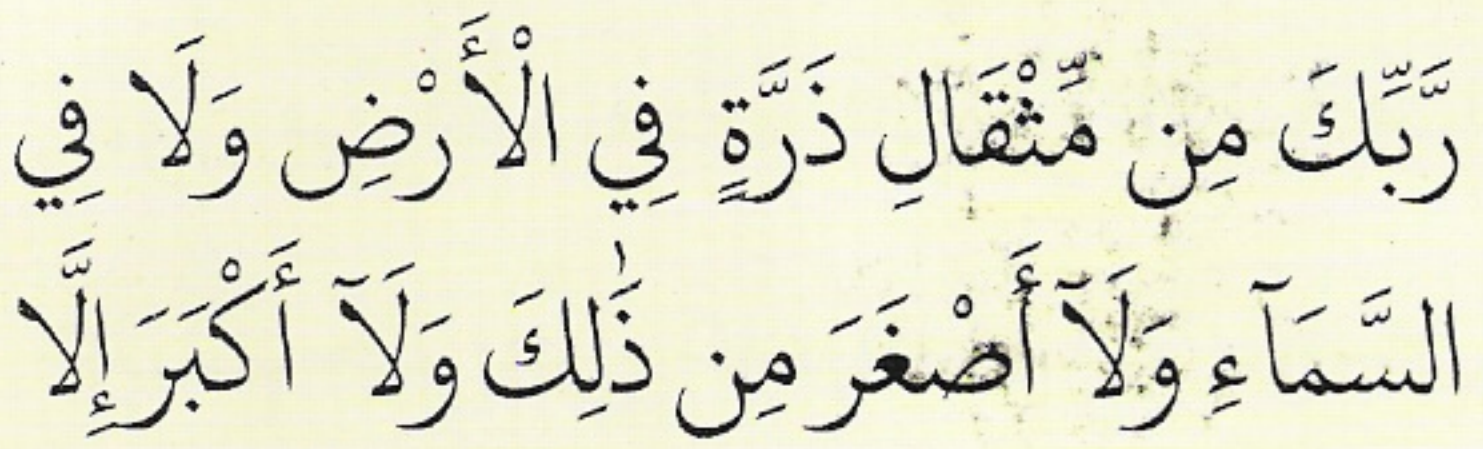 رَّبِّكَ مِن مِّثْقَالِ ذَرَّةٍ فِي الْأَرْضِ وَلَا فِي
السَّمَآءِ وَلَآ أَصْغَرَ مِن ذَٰلِكَ وَلَآ أَكْبَرَ إِلَّا